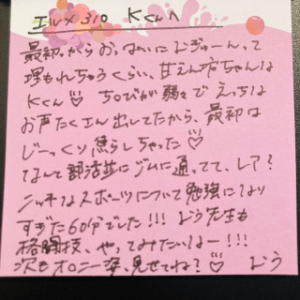 エルメ310 Kくんへ
最初からおっぱいにどぅーんって
埋もれちゃうくらい、甘えん坊ちゃんな
Kくん♡ ちびが弱々でえっちな
お声たくさん出してたから、最初は
じーっくり焦らしちゃった♡
なんて部活並にジムに通ってて、レア?
ニッチなスポーツについて勉強になり
すぎた60分でした!!! どう先生も
格闘技、やってみたいなー!!!
次もオ〇ニー姿、見せてね?♡